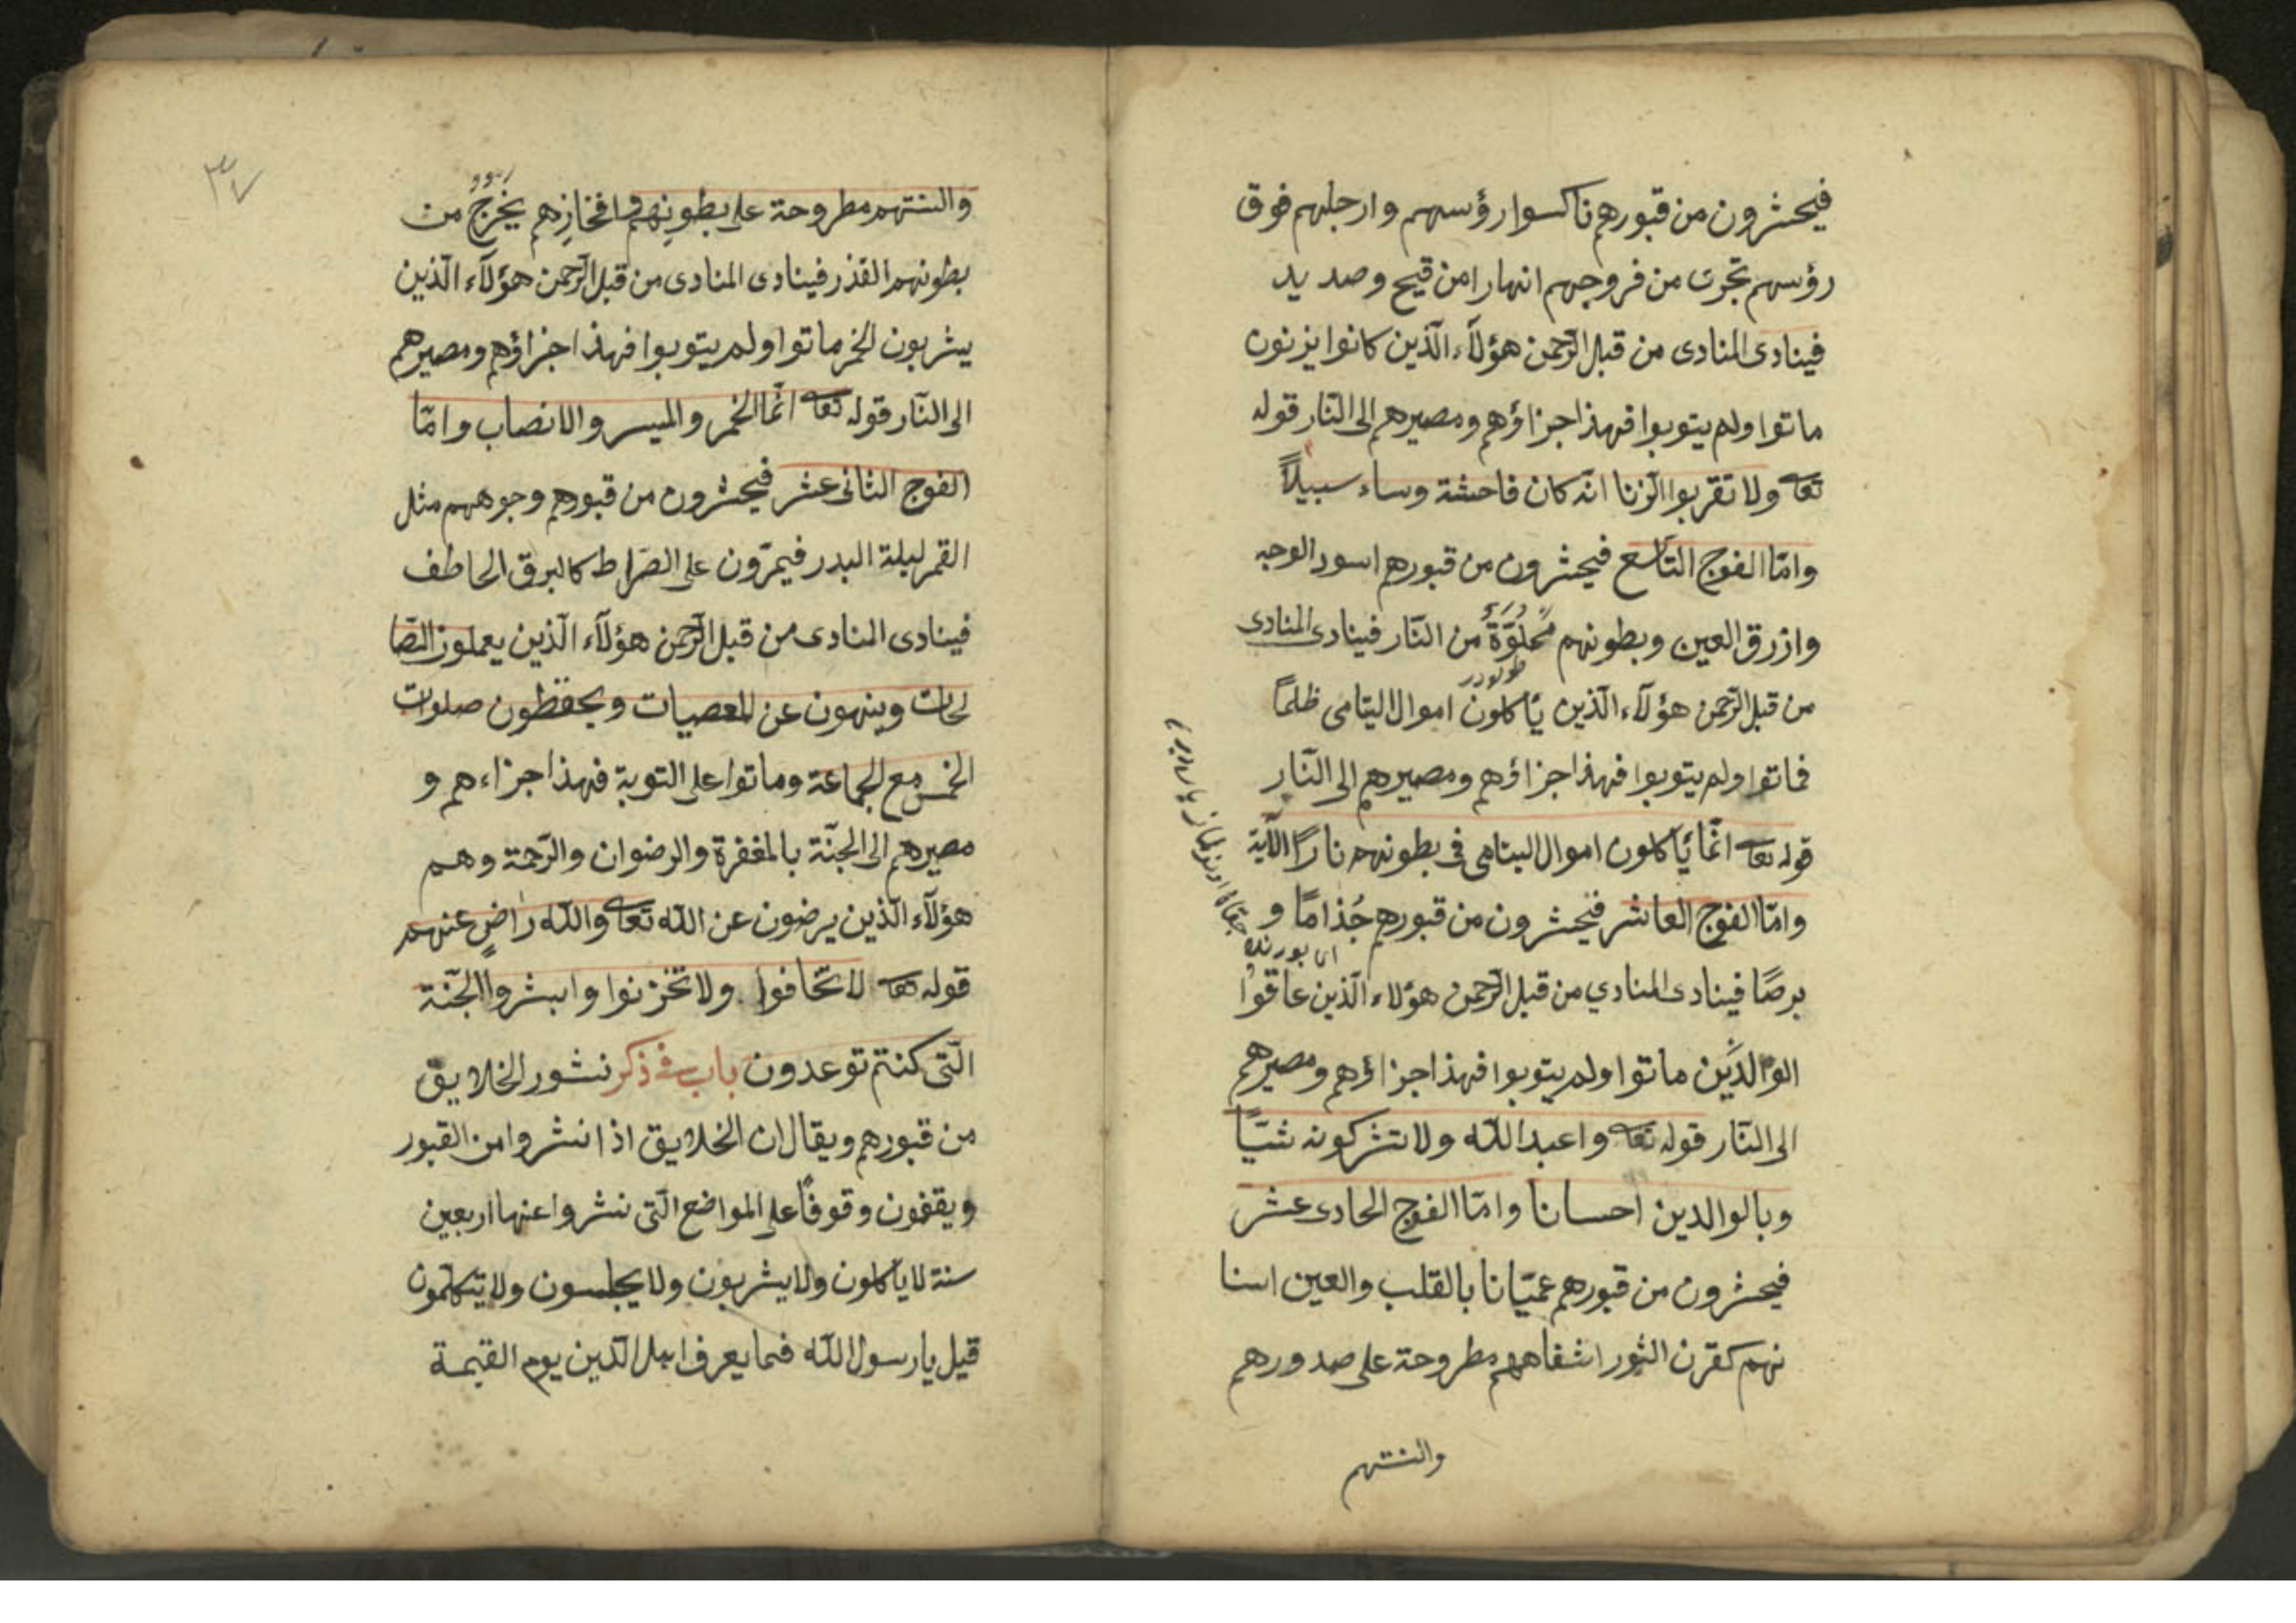 فيحشرون من قبورهم ناكسوا رؤسهم وارجلهم فوق
رؤسهم تجرى من فروجهم انهارا من قيح وصديد
فينادى المنادى من قبل الرّحمن هؤلآء الّذين كانوا يزنون
ماتوا ولم يتوبوا فهذا جزاؤهم ومصيرهم الى النّار قوله
تعا ولا تقربوا الزّنا انّه كان فاحشة وساء سبيلاً
وامّا الفوج التّاسع فيحشرون من قبورهم اسود الوجه
وازرق العين وبطونهم مملوّة من النّار فينادى المنادى
طولودر
من قبل الرّحمن هؤلآء الّذين يأكلون اموال اليتامى ظلماً
فماتوا ولم يتوبوا فهذا جزاؤهم ومصيرهم الى النّار
قوله تعا انّما يأكلون اموال اليتامى فى بطونهم نارًا الآية
وامّا الفوج العاشر فيحشرون من قبورهم جُذامًا و
برصًا فينادى المنادي من قبل الرّحمن هؤلاء الّذين عاقوا
الوالدَين ماتوا ولم يتوبوا فهذا جزاؤهم ومصيرهم
الى النّار قوله تعا واعبد اللّه ولا تشركونه شيّاً
وبالوالدين احسانا وامّا الفوج الحادى عشر
فيحشرون من قبورهم عميّانا بالقلب والعين اسنا
نهم كقرن الثور اشفاههم مطروحة على صدورهم
والسنتهم
٣٧
والسنتهم مطروحة على بطونِهم وافخازِهم يخرج من
بطونهم القذر فينادى المنادى من قبل الرّحمن هؤلآء الّذين
يشربون الخمر ماتوا ولم يتوبوا فهذا جزاؤهم ومصيرهم
الى النّار قوله تعا انّما الخمر والميسر والانصاب وامّا
الفوج الثانى عشر فيحشرون من قبورهم وجوههم مثل
القمر ليلة البدر فيمرّون على الصّراط كالبرق الخاطف
فينادى المنادى من قبل الرّحمن هؤلآء الّذين يعملون الصّا
لحات وينهون عن المعصيات ويحفظون صلوات
الخمس مع الجماعة وماتوا على التوبة فهذا جزاءهم و
مصيرهم الى الجنّة بالمغفرة والرضوان والرّحمة وهم
هؤلآء الّذين يرضون عن اللّه تعا واللّه راضٍ عنهم
قوله تعا لا تخافوا ولا تحزنوا وابشروا الجنّة
الّتى كنتم توعدون باب فى ذكر نشور الخلايق
من قبورهم ويقال ان الخلايق اذا نشروا من القبور
ويقفون وقوفًا على المواضع الّتى نشروا عنها اربعين
سنة لا يأكلون ولا يشربون ولا يجلسون ولا يتكلّمون
قيل يا رسول اللّه فما يعرف اهل الدّين يوم القيمة